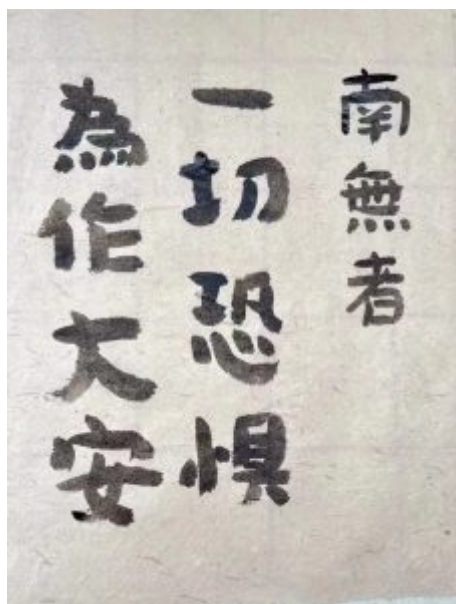 南無者
一切恐惧
為作大安